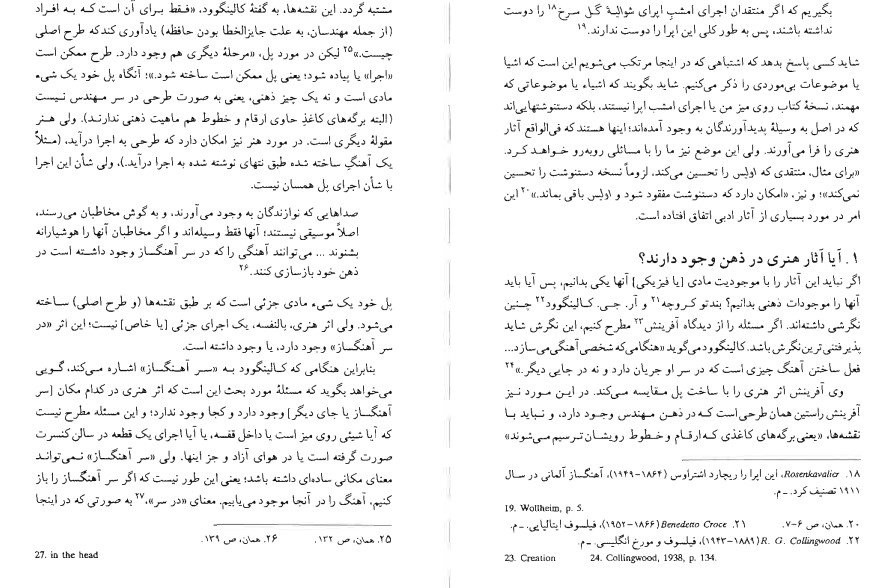 بگیریم که اگر منتقدان اجرای امشبِ اپرای شوالیهٔ گل سرخ۱۸ را دوست
نداشته باشند، پس به طور کلی این اپرا را دوست ندارند.۱۹
شاید کسی پاسخ بدهد که اشتباهی که در اینجا مرتکب می‌شویم این است که اشیا
یا موضوعات بی‌موردی را ذکر می‌کنیم. شاید بگویند که اشیاء یا موضوعاتی که
مهمند، نسخهٔ کتاب روی میز من یا اجرای امشب اپرا نیستند، بلکه دستنوشتهایی‌اند
که در اصل به وسیلهٔ پدیدآورندگان به وجود آمده‌اند؛ اینها هستند که فی‌الواقع آثار
هنری را فرا می‌آورند. ولی این موضع نیز ما را با مسائلی روبه‌رو خواهد کرد.
«برای مثال، منتقدی که اولیس را تحسین می‌کند، لزوماً نسخه دستنوشت را تحسین
نمی‌کند»؛ و نیز، «امکان دارد که دستنوشت مفقود شود و اولیس باقی بماند.»۲۰ این
امر در مورد بسیاری از آثار ادبی اتفاق افتاده است.
۱. آیا آثار هنری در ذهن وجود دارند؟
اگر نباید این آثار را با موجودیت مادی [یا فیزیکی] آنها یکی بدانیم، پس آیا باید
آنها را موجودات ذهنی بدانیم؟ بندتو کروچه۲۱ و آر. جی. کالینگوود۲۲ چنین
نگرشی داشته‌اند. اگر مسئله را از دیدگاه آفرینش۲۳ مطرح کنیم، این نگرش شاید
پذیرفتنی‌ترین نگرش باشد. کالینگوود می‌گوید «هنگامی که شخصی آهنگی می‌سازد...
فعل ساختن آهنگ چیزی است که در سر او جریان دارد و نه در جایی دیگر.»۲۴
وی آفرینش اثر هنری را با ساخت پل مقایسه می‌کند. در این مورد نیز
آفرینش راستین همان طرحی است که در ذهن مهندس وجود دارد، و نباید با
نقشه‌ها، «یعنی برگه‌های کاغذی که ارقام و خطوط رویشان ترسیم می‌شوند»
۱۸. Rosenkavalier، این اپرا را ریچارد اشتراوس (۱۸۶۴-۱۹۴۹)، آهنگساز آلمانی در سال
۱۹۱۱ تصنیف کرد. ـ م.
19. Wollheim, p. 5.
۲۰. همان، ص ۶-۷. ۲۱. Benedetto Croce (۱۸۶۶-۱۹۵۲)، فیلسوف ایتالیایی. ـ م.
۲۲. R. G. Collingwood (۱۸۸۹-۱۹۴۳)، فیلسوف و مورخ انگلیسی. ـ م.
23. Creation 24. Collingwood, 1938, p. 134.
مشتبه گردد. این نقشه‌ها، به گفتهٔ کالینگوود، «فقط برای آن است که به افراد
(از جمله مهندسان، به علت جایزالخطا بودن حافظه) یادآوری کندکه طرح اصلی
چیست.»۲۵ لیکن در مورد پل، «مرحلهٔ دیگری هم وجود دارد. طرح ممکن است
«اجرا» یا پیاده شود؛ یعنی پل ممکن است ساخته شود.»؛ آنگاه پل خود یک شیء
مادی است و نه یک چیز ذهنی، یعنی به صورت طرحی در سر مهندس نیست
(البته برگه‌های کاغذِ حاوی ارقام و خطوط هم ماهیت ذهنی ندارند). ولی هنر
مقولهٔ دیگری است. در مورد هنر نیز امکان دارد که طرحی به اجرا درآید، (مثلاً
یک آهنگِ ساخته شده طبق نتهای نوشته شده به اجرا درآید.)، ولی شأن این اجرا
با شأن اجرای پل همسان نیست.
صداهایی که نوازندگان به وجود می‌آورند، و به گوش مخاطبان می‌رسند،
اصلاً موسیقی نیستند؛ آنها فقط وسیله‌اند و اگر مخاطبان آنها را هوشیارانه
بشنوند ... می‌توانند آهنگی را که در سر آهنگساز وجود داشته است در
ذهن خود بازسازی کنند.۲۶
پل خود یک شیء مادی جزئی است که بر طبق نقشه‌ها (و طرح اصلی) ساخته
می‌شود. ولی اثر هنری، بالنفسه، یک اجرای جزئی [یا خاص] نیست؛ این اثر «در
سر آهنگساز» وجود دارد، یا وجود داشته است.
بنابراین هنگامی که کالینگوود به «سر آهنگساز» اشاره می‌کند، گویی
می‌خواهد بگوید که مسئلهٔ مورد بحث این است که اثر هنری در کدام مکان [سر
آهنگساز یا جای دیگر] وجود دارد و کجا وجود ندارد؛ و این مسئله مطرح نیست
که آیا شیئی روی میز است یا داخل قفسه، یا آیا اجرای یک قطعه در سالن کنسرت
صورت گرفته است یا در هوای آزاد و جز اینها. ولی «سر آهنگساز» نمی‌تواند
معنای مکانی ساده‌ای داشته باشد؛ یعنی این طور نیست که اگر سر آهنگساز را باز
کنیم، آهنگ را در آنجا موجود می‌یابیم. معنای «در سر»،۲۷ به صورتی که در اینجا
۲۵. همان، ص ۱۳۲. ۲۶. همان، ص ۱۳۹.
27. in the head